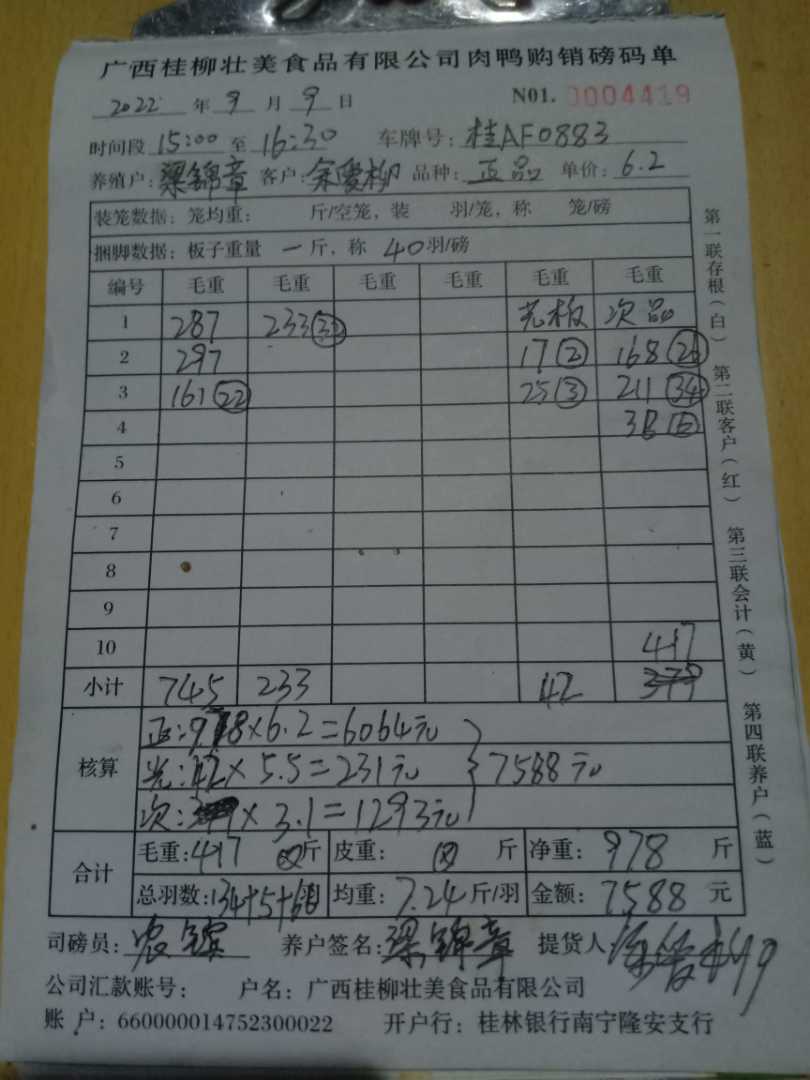 广西桂柳壮美食品有限公司肉鸭购销磅码单
2022 年 9 月 9 日 N01. 0004419
时间段 15:00 至 16:30 车牌号: 桂AF0883
养殖户: 梁锦章 客户: 余爱柳 品种: 正品 单价: 6.2
装笼数据: 笼均重: 斤/空笼, 装 羽/笼, 称 笼/磅
捆脚数据: 板子重量 一 斤, 称 40 羽/磅
编号 毛重 毛重 毛重 毛重 毛重 毛重
1 287 233 光板 次品
2 297 17 2 168
3 161 22 25 3 211 34
4
5
6
7
8
9
10 417
小计 745 233 42
核算
正: 978×6.2=6064元
光: 42×5.5=231元 7588元
次: ×3.1=1293元
合计
毛重: 417 斤 皮重: 斤 净重: 978 斤
总羽数: 134+5+ 均重: 7.24 斤/羽 金额: 7588 元
司磅员: 农 养户签名: 梁锦章 提货人: 余爱柳
公司汇款账号: 户名: 广西桂柳壮美食品有限公司
账 户: 660000014752300022 开户行: 桂林银行南宁隆安支行
第一联存根(白)
第二联客户(红)
第三联会计(黄)
第四联养户(蓝)